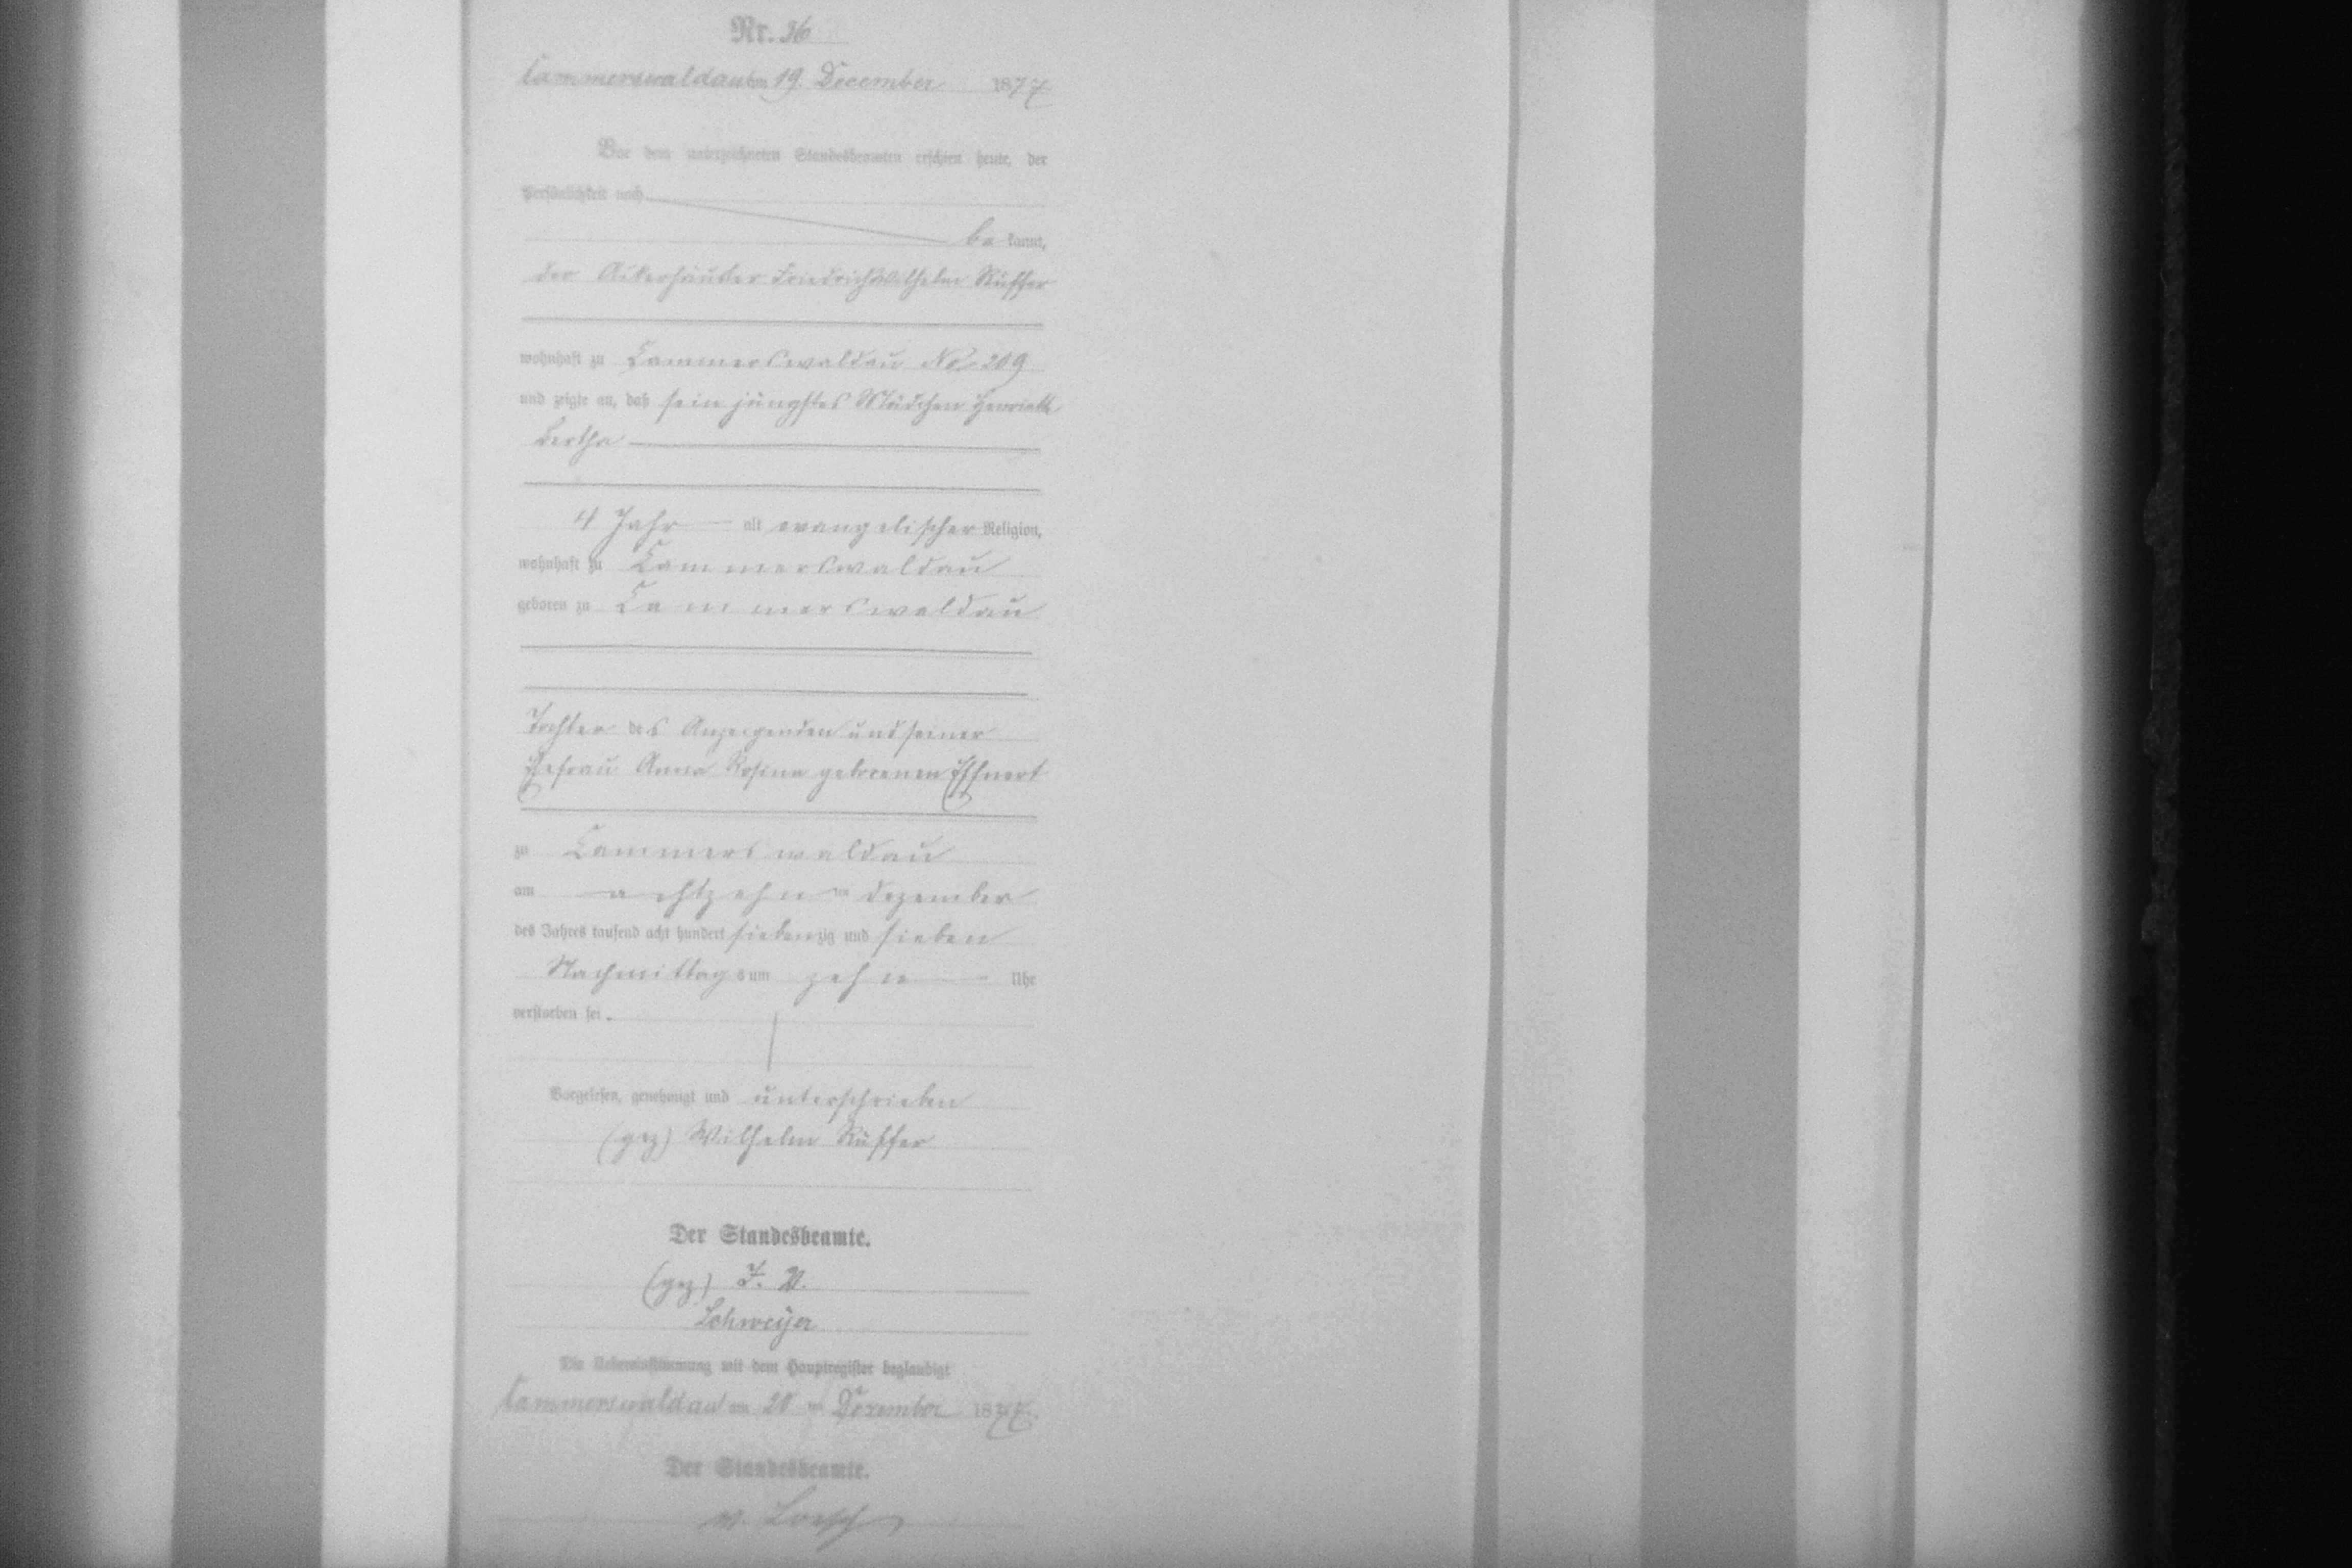 Nr. 36
Cammerswaldau am 19. December 1877
Vor dem unterzeichneten Standesbeamten erschien heute, der
Persönlichkeit nach
be kannt,
der Ackerhäusler Friedrich Wilhelm Rüffer
wohnhaft zu Cammerswaldau No. 209
und zeigte an, daß sein jüngstes Mädchen Henriette
Bertha
4 Jahr alt evangelischer Religion,
wohnhaft zu Cammerswaldau
geboren zu Cammerswaldau
Tochter des Anzeigenden und seiner
Ehefrau Anna Rosina geborenen
zu Cammerswaldau
am achtzehnten Dezember
des Jahres tausend acht hundert siebenzig und sieben
Nachmittags um zehn Uhr
verstorben sei.
Vorgelesen, genehmigt und unterschrieben
(gez) Wilhelm Rüffer
Der Standesbeamte.
(gez) J. V.
Schweijer
Die Uebereinstimmung mit dem Hauptregister beglaubigt
Cammerswaldau am 20ten Dezember 1877.
Der Standesbeamte.
v. Loesch